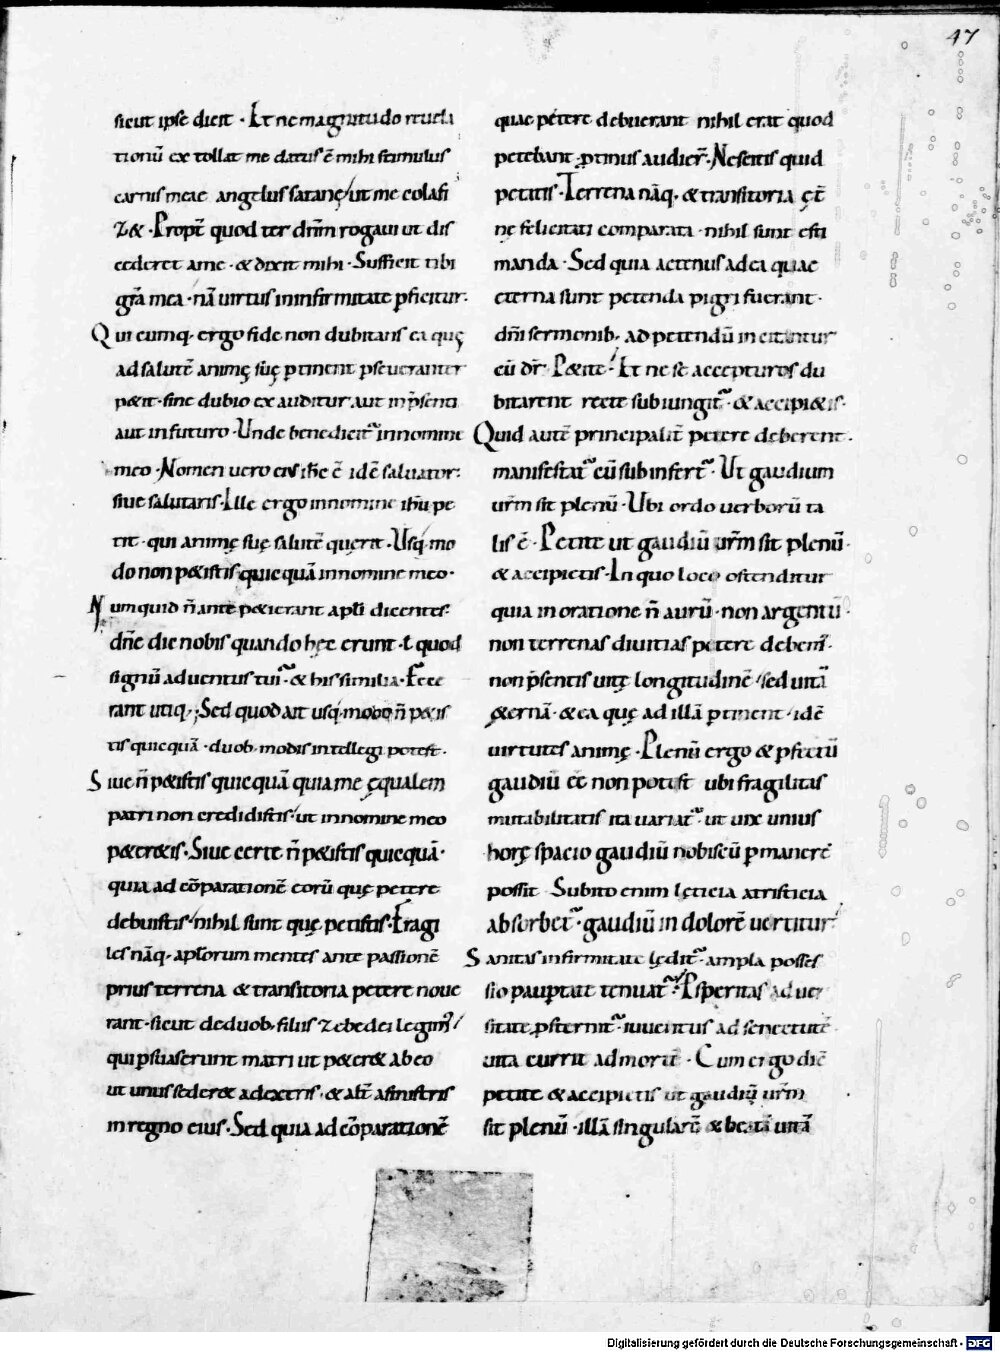 47
sicut ipse dicit · Et ne magnitudo reuela
tionū extollat me datus ē mihi stimulus
carnis meae angelus satanę ut me colafi
z& · Propt̄ quod ter dnm̄ rogaui ut dis
cederet ame · & dixit mihi · Sufficit tibi
gr̄a mea · nā uirtus ininfirmitate ꝑficitur·
Quicumq· ergo fide non dubitans ea quę
ad salutē animę suę ꝑtinent ꝑseueranter
p&it · sine dubio exauditur aut inp̄senti
aut infuturo · Unde benedicit̃ innomine
meo · Nomen uero eius ih̄c ē idē saluator·
siue salutaris · Ille ergo innomine ih̄u pe
tit · qui animę suę salutē querit · Usq· mo
do non p&istis quicquā innomine meo ·
Numquid n̄ ante p&ierant apl̄i dicentes·
dn̄e dic nobis quando hęc erunt · ł quod
signū aduentus tui · & his similia · Fece
rant utiq· ; Sed quod ait usq· modo n̄ p&is
tis quicquā · duob· modis intellegi potest ·
Siue n̄ p&istis quicquā quia me ęqualem
patri non credidistis · ut innomine meo
p&er&is · Siue certe n̄ p&istis quicquā ·
quia ad cōparationē eorū quę petere
debuistis · nihil sunt quę petistis · Fragi
les nāq· apl̄orum mentes ante passionē
prius terrena & transitoria petere noue
rant · sicut deduob· filiis zebedei legim̃
qui ꝑsuaserunt matri ut p&er& ab eo
ut unus seder& adextris · & alt̄ asinistris
in regno eius · Sed quia ad cōparationē
quae petere debuerant nihil erat quod
petebant · ꝓtinus audier̄ · Nescitis quid
petatis · Terrena nāq· & transitoria ęt̄
nę felicitati comparata · nihil sunt esti
manda · Sed quia actenus ad ea quae
eterna sunt petenda pigri fuerant ·
dn̄i sermonib· ad petendū incitantur
cū dr̄ · P&ite · Et ne se accepturos du
bitarent recte subiungit̃ · & accipi&is ·
Quid autē principalit̄ petere deberent ·
manifestat̃ cū subinfert̃ · Ut gaudium
ur̄m sit plenū · Ubi ordo uerborū ta
lis ē · Petite ut gaudiū ur̄m sit plenū ·
& accipietis · In quo loco ostenditur
quia in oratione n̄ aurū · non argentū ·
non terrenas diuitias petere debem̃ ·
non p̄sentis uitę longitudinē · sed uitā
&ernā · & ea quę ad illā ꝑtinent · idē
uirtutes animę · Plenū ergo & ꝑfectū
gaudiū eē non potest ubi fragilitas
mutabilitatis ita uariat̃ · ut uix unius
horę spacio gaudiū nobiscū ꝑmanere
possit · Subito enim lęticia atristicia
absorbet̃ · gaudiū in dolorē uertitur
Sanitas infirmitate lędit̃ · ampla posses
sio pauꝑtate tenuat̃ · Ꝓsperitas aduer
sitate ꝓsternit̃ · iuuentus ad senectutē
uita currit ad mortē · Cum ergo dicē
petite & accipietis ut gaudiū ur̄m
sit plenū · illā singularē & beatā uitā
Digitalisierung gefördert durch die Deutsche Forschungsgemeinschaft - DFG